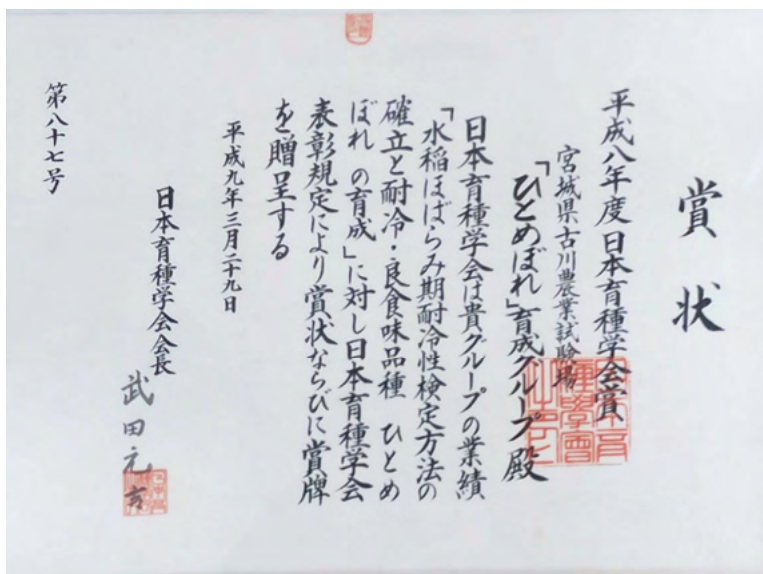 賞状
平成八年度日本育種学会賞
宮城県古川農業試験場
「ひとめぼれ」育成グループ殿
日本育種学会は貴グループの業績
「水稲ほばらみ期耐冷性検定方法の
確立と耐冷・良食味品種 ひとめ
ぼれ の育成」に対し日本育種学会
表彰規定により賞状ならびに賞牌
を贈呈する
平成九年三月二十九日
日本育種学会会長
武田元吉
第八十七号